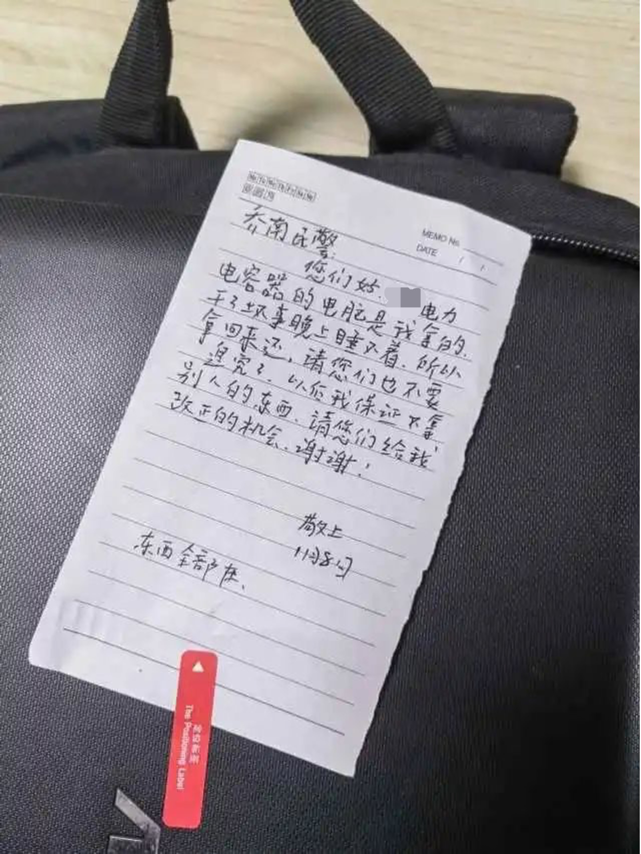 MEMO No.
DATE / /
乔南民警:
您们好. 电力
电容器的电脑是我拿的.
干了坏事晚上睡不着. 所以
拿回来还, 请您们也不要
追究了. 以后我保证不拿
别人的东西. 请您们给我
改正的机会. 谢谢!
敬上
11月8日
东西全部在.
定位标签
The Positioning Label